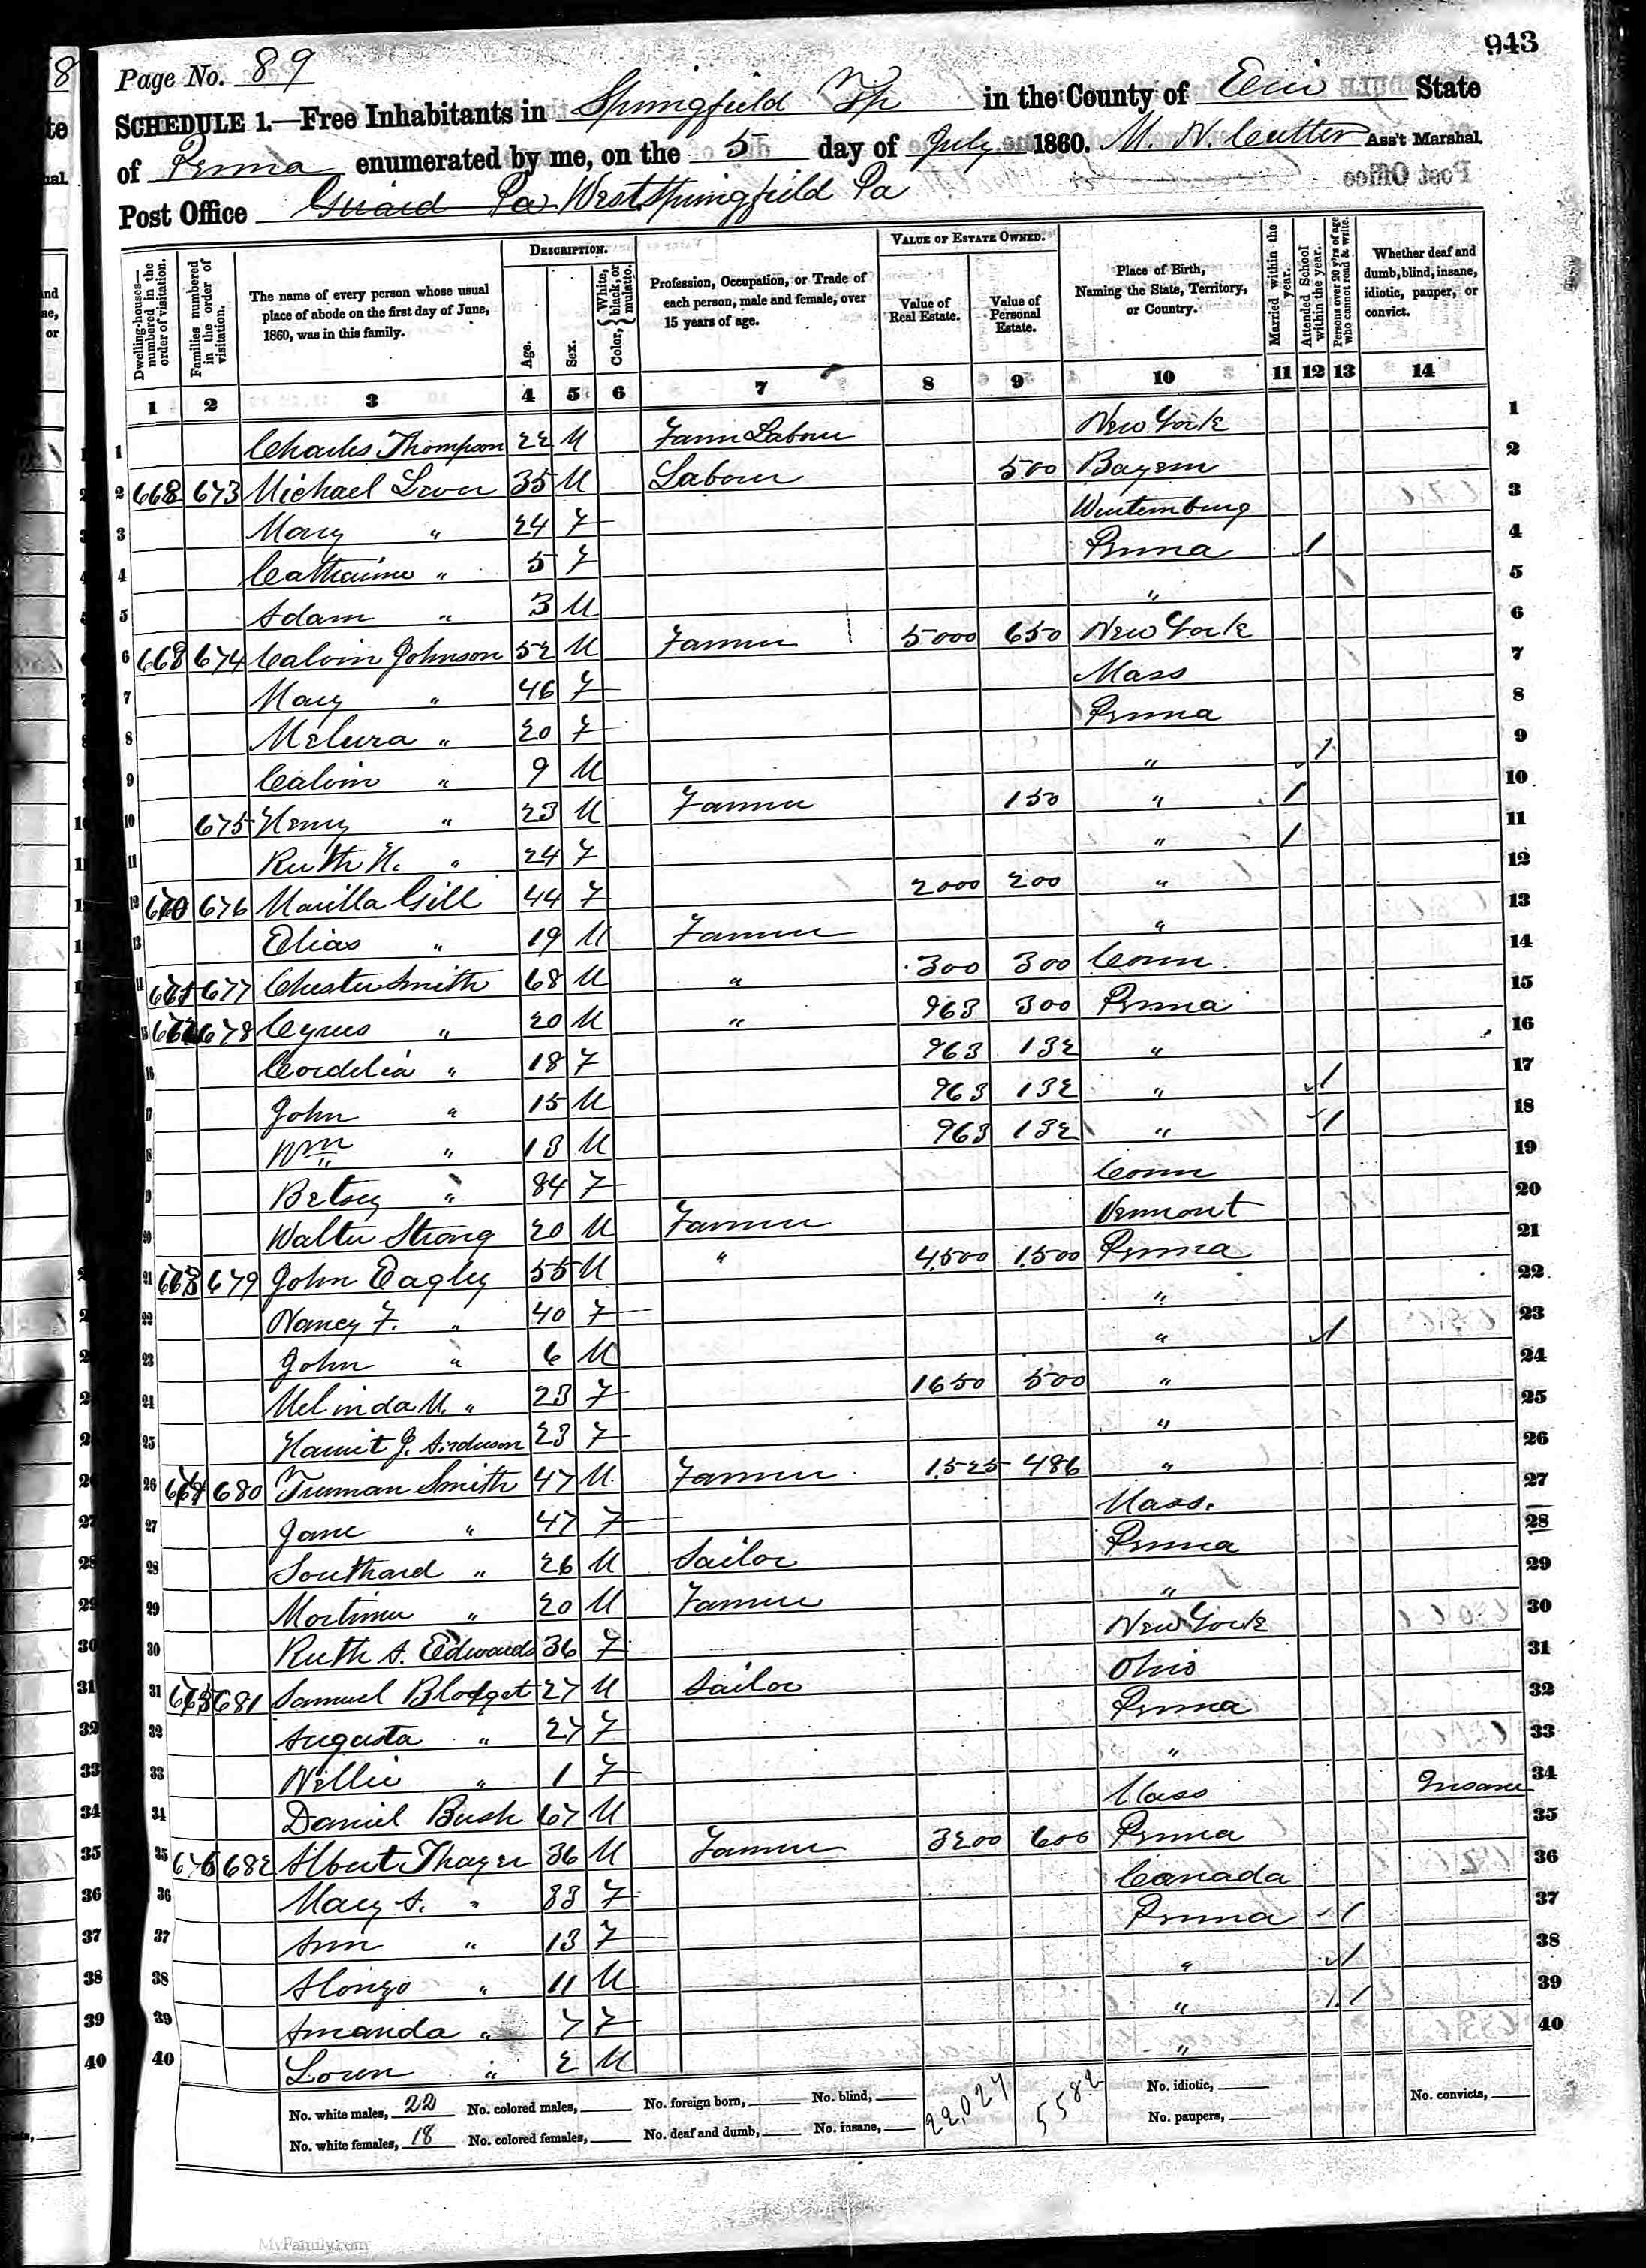 943
Page No. 89
SCHEDULE 1.—Free Inhabitants in Springfield Tp in the County of Erie State
of Penna enumerated by me, on the 5 day of July 1860. M. N. Cutter Ass't Marshal.
Post Office Girard Pa West Springfield Pa
Dwelling-houses—numbered in the order of visitation. Families numbered in the order of visitation. The name of every person whose usual place of abode on the first day of June, 1860, was in this family. DESCRIPTION. Age. Sex. Color, {White, black, or mulatto. Profession, Occupation, or Trade of each person, male and female, over 15 years of age. VALUE OF ESTATE OWNED. Value of Real Estate. Value of Personal Estate. Place of Birth, Naming the State, Territory, or Country. Married within the year. Attended School within the year. Persons over 20 y'rs of age who cannot read & write. Whether deaf and dumb, blind, insane, idiotic, pauper, or convict.
1 2 3 4 5 6 7 8 9 10 11 12 13 14
1 Charles Thompson 22 M Farm Labour New York 1
2 668 673 Michael 35 M Labour 500 Bayern 2
3 Mary " 24 F Wurtemburg 3
4 Catharine " 5 F Penna / 4
5 Adam " 3 M " 5
6 668 674 Calvin Johnson 52 M Farmer 5000 650 New York 6
7 Mary " 46 F Mass 7
8 Melura " 20 F Penna 8
9 Calvin " 9 M " / 9
10 675 Henry " 23 M Farmer 150 " / 10
11 Ruth H. " 24 F " / 11
12 670 676 Marilla Gill 44 F 2000 200 " 12
13 Elias " 19 M Farmer " 13
14 671 677 Chester Smith 68 M " 300 300 Conn. 14
15 672 678 Cyrus " 20 M " 963 300 Penna 15
16 Cordelia " 18 F 963 132 " 16
17 John " 15 M 963 132 " / 17
18 Wm " 13 M 963 132 " / 18
19 Betsey " 84 F Conn 19
20 Walter Strong 20 M Farmer Vermont 20
21 673 679 John Eagley 55 M " 4500 1500 Penna 21
22 Nancy F. " 40 F " 22
23 John " 6 M " / 23
24 Melinda M. " 23 F 1650 500 " 24
25 Harriet J. Anderson 23 F " 25
26 674 680 Truman Smith 47 M Farmer 1525 486 " 26
27 Jane " 47 F Mass. 27
28 Southard " 26 M Sailor Penna 28
29 Mortimer " 20 M Farmer " 29
30 Ruth A. Edwards 36 F New York 30
31 675 681 Samuel Blodget 27 M Sailor Ohio 31
32 Augusta " 27 F Penna 32
33 Nellie " 1 F " 33
34 Daniel Bush 67 M Mass Insane 34
35 676 682 Albert Thayer 36 M Farmer 3200 600 Penna 35
36 Mary A. " 33 F Canada 36
37 Ann " 13 F Penna / 37
38 Alonzo " 11 M " / 38
39 Amanda " 7 F " / 39
40 Loren " 2 M " 40
No. white males, 22 No. colored males, No. foreign born, No. blind, 22,027 5582 No. idiotic, No. convicts,
No. white females, 18 No. colored females, No. deaf and dumb, No. insane, No. paupers,
MyFamily.com